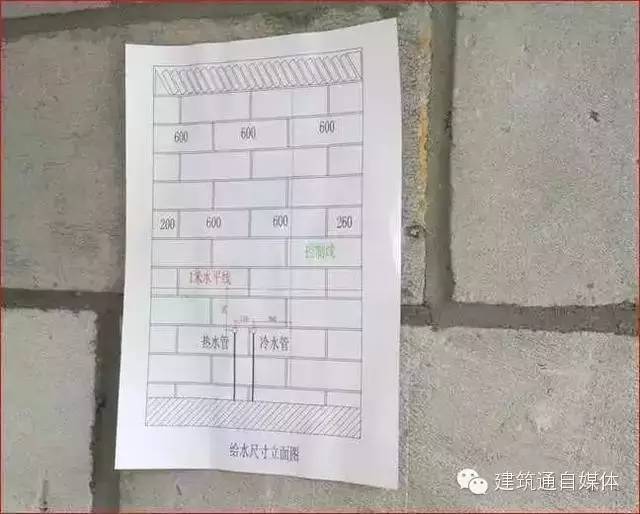 600 600 600
200 600 600 260
控制线
1米水平线
热水管 冷水管
给水尺寸立面图
建筑通自媒体